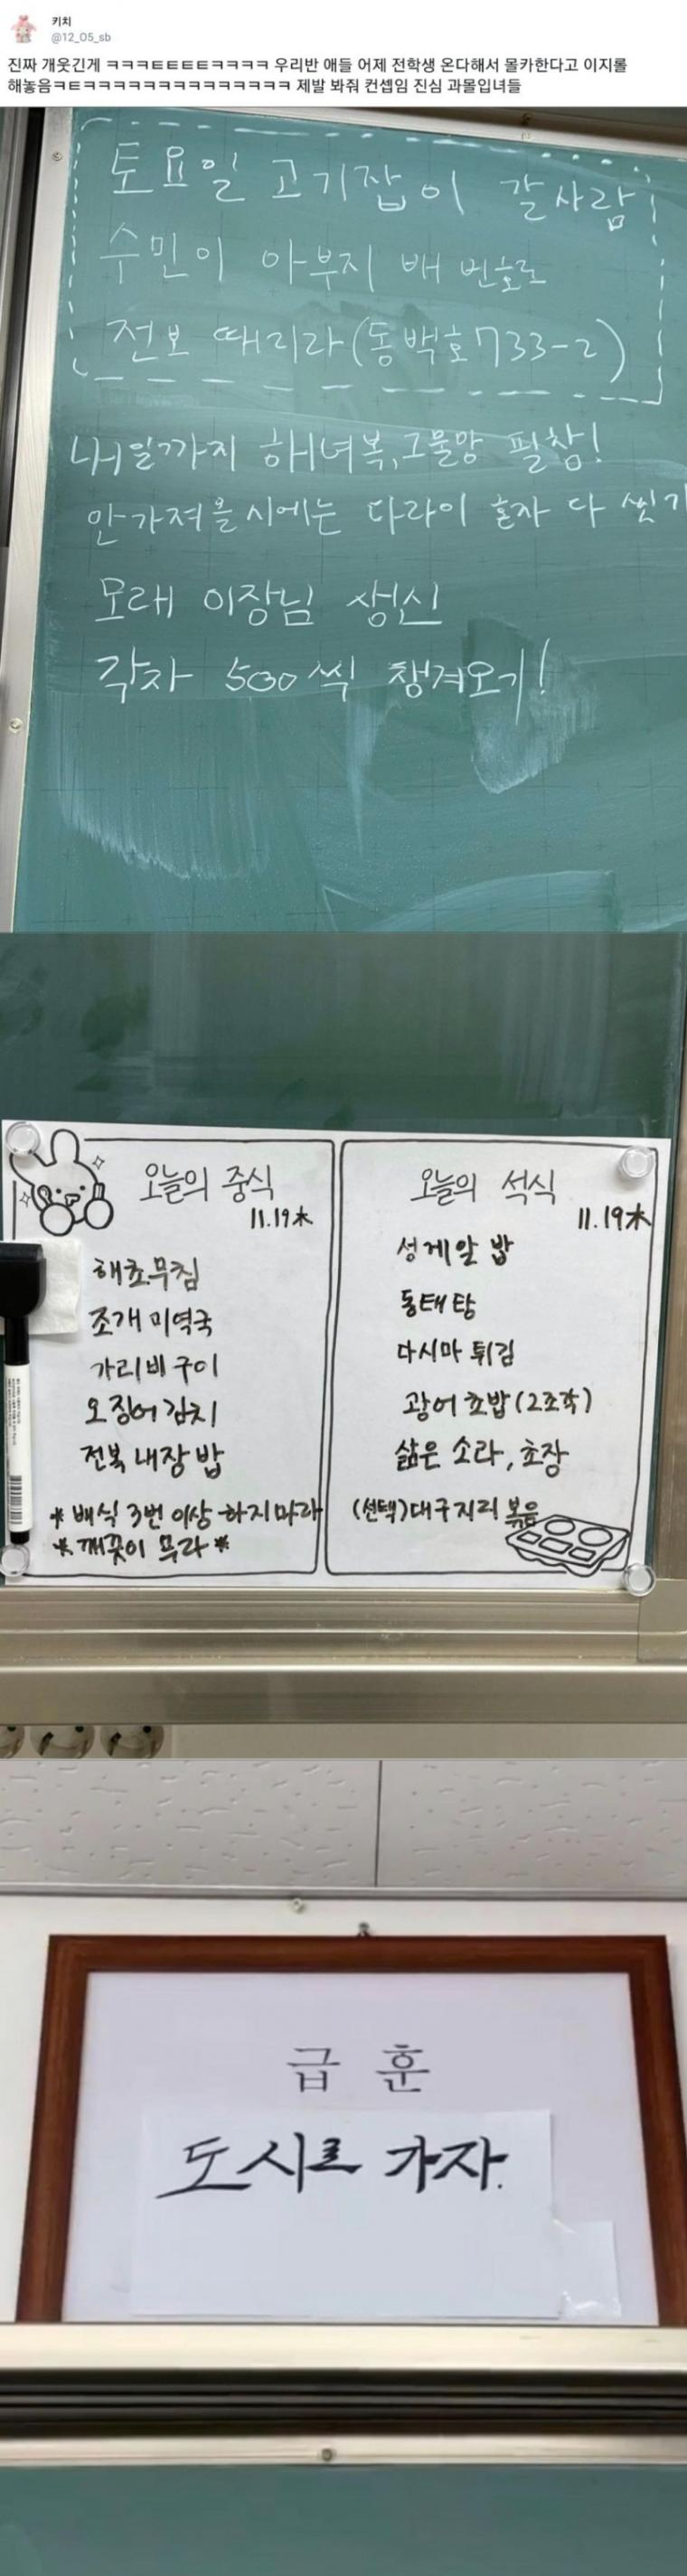 키치
@12_05_sb
진짜 개웃긴게 ㅋㅋㅋㅌㅌㅌㅌㅋㅋㅋㅋ 우리반 애들 어제 전학생 온다해서 몰카한다고 이지롤
해놓음ㅋㅌㅋㅋㅋㅋㅋㅋㅋㅋㅋㅋㅋㅋㅋㅋ 제발 봐줘 컨셉임 진심 과몰입녀들
토요일 고기잡이 갈사람
수민이 아부지 배 번호로
전보 때리라(동백호733-2)
내일까지 해녀복,그물망 필참!
안가져올시에는 다라이 혼자 다 씻기
모레 이장님 생신
각자 500씩 챙겨오기!
오늘의 중식
11.19木
해초무침
조개 미역국
가리비 구이
오징어 김치
전복 내장 밥
* 배식 3번 이상 하지마라
* 깨끗이 무라 *
오늘의 석식
11.19木
성게알 밥
동태탕
다시마 튀김
광어 초밥(2조각)
삶은 소라, 초장
(선택)대구지리 볶음
급훈
도시로 가자.